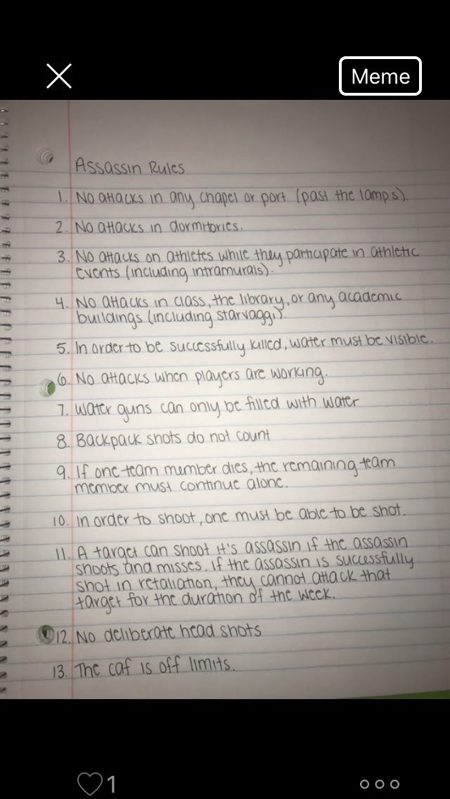 Meme
Assassin Rules
1. No attacks in any chapel or port (past the lamps).
2. No attacks in dormitories.
3. No attacks on athletes while they participate in athletic
events (including intramurals).
4. No attacks in class, the library, or any academic
buildings (including starvaggi).
5. In order to be successfully killed, water must be visible.
6. No attacks when players are working.
7. Water guns can only be filled with water
8. Backpack shots do not count
9. If one team member dies, the remaining team
member must continue alone.
10. In order to shoot, one must be able to be shot.
11. A target can shoot it's assassin if the assassin
shoots and misses. If the assassin is successfully
shot in retaliation, they cannot attack that
target for the duration of the week.
12. No deliberate head shots
13. The caf is off limits.
1